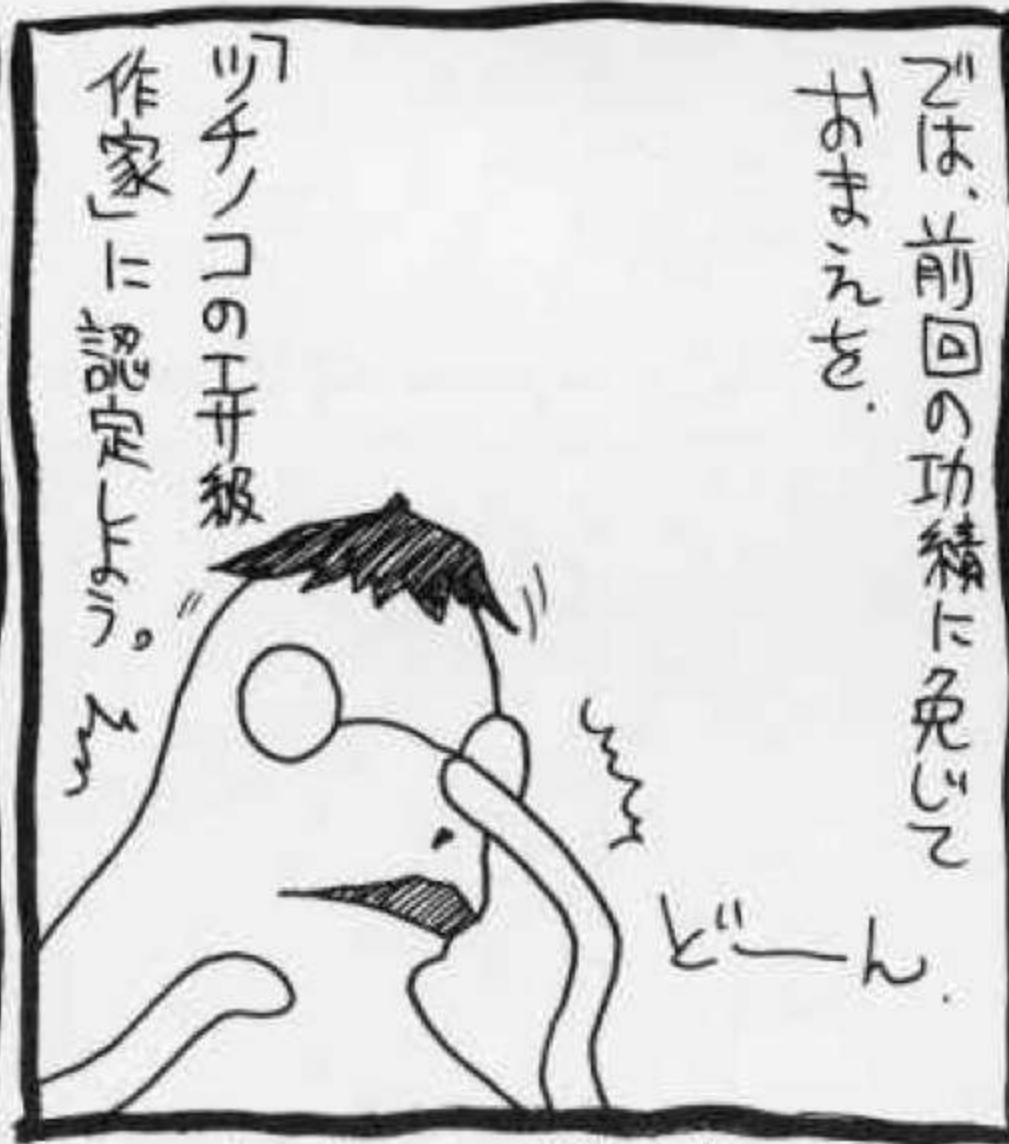 では、前回の功績に免じて
おまえを、
「ツチノコのエサ級
作家」に認定しよう。
どーん、